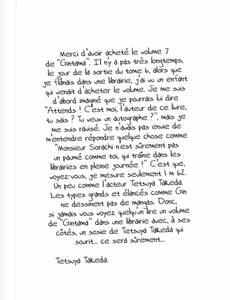 Merci d'avoir acheté le volume 7
de "Gintama". Il n'y a pas très longtemps,
le jour de la sortie du tome 6, alors que
je flânais dans une librairie, j'ai vu un enfant
qui venait d'acheter le volume. Je me suis
d'abord imaginé que je pourrais lui dire
"Attends ! C'est moi, l'auteur de ce livre,
tu sais ? Tu veux un autographe ?", mais je
me suis ravisé. Je n'avais pas envie de
m'entendre répondre quelque chose comme
"Monsieur Sorachi n'est sûrement pas
un paumé comme toi, qui traîne dans les
librairies en pleine journée !" C'est que,
voyez-vous, je mesure seulement 1 m 62.
Un peu comme l'acteur Tetsuya Takeda.
Les types grands et élancés comme Gin
ne dessinent pas de mangas. Donc,
si jamais vous voyez quelqu'un lire un volume
de "Gintama" dans une librairie avec, à ses
côtés, un sosie de Tetsuya Takeda qui
sourit... ce sera sûrement...
Tetsuya Takeda